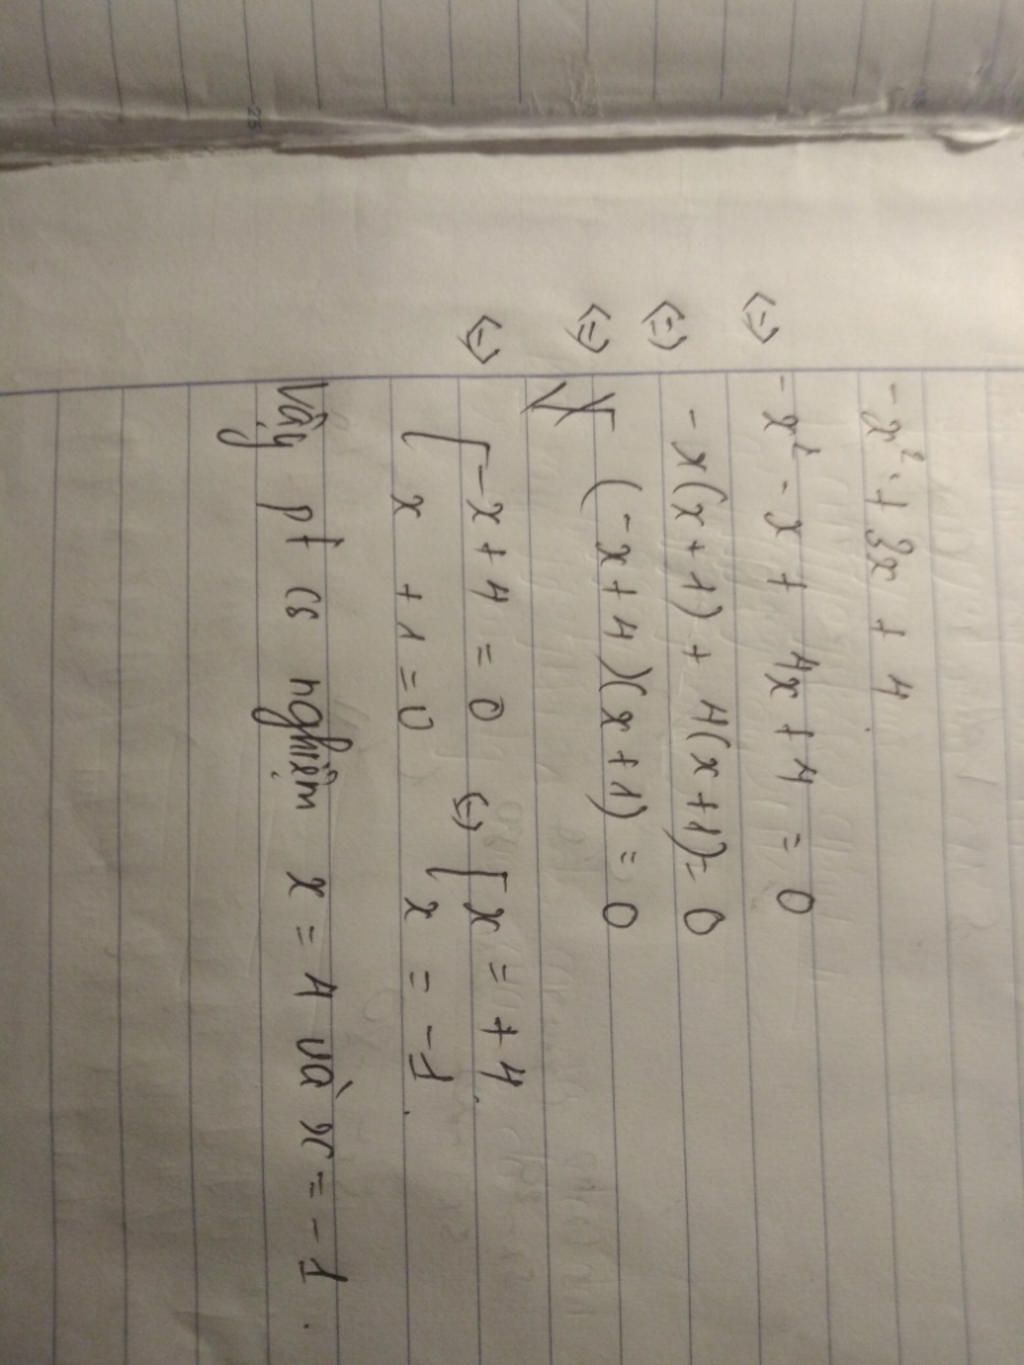 -x² + 3x + 4
<=> -x² - x + 4x + 4 = 0
<=> -x(x+1) + 4(x+1) = 0
<=> (-x+4)(x+1) = 0
<=> [ -x + 4 = 0 <=> [ x = +4.
x + 1 = 0 x = -1.
Vậy pt có nghiệm x = 4 và x = -1.